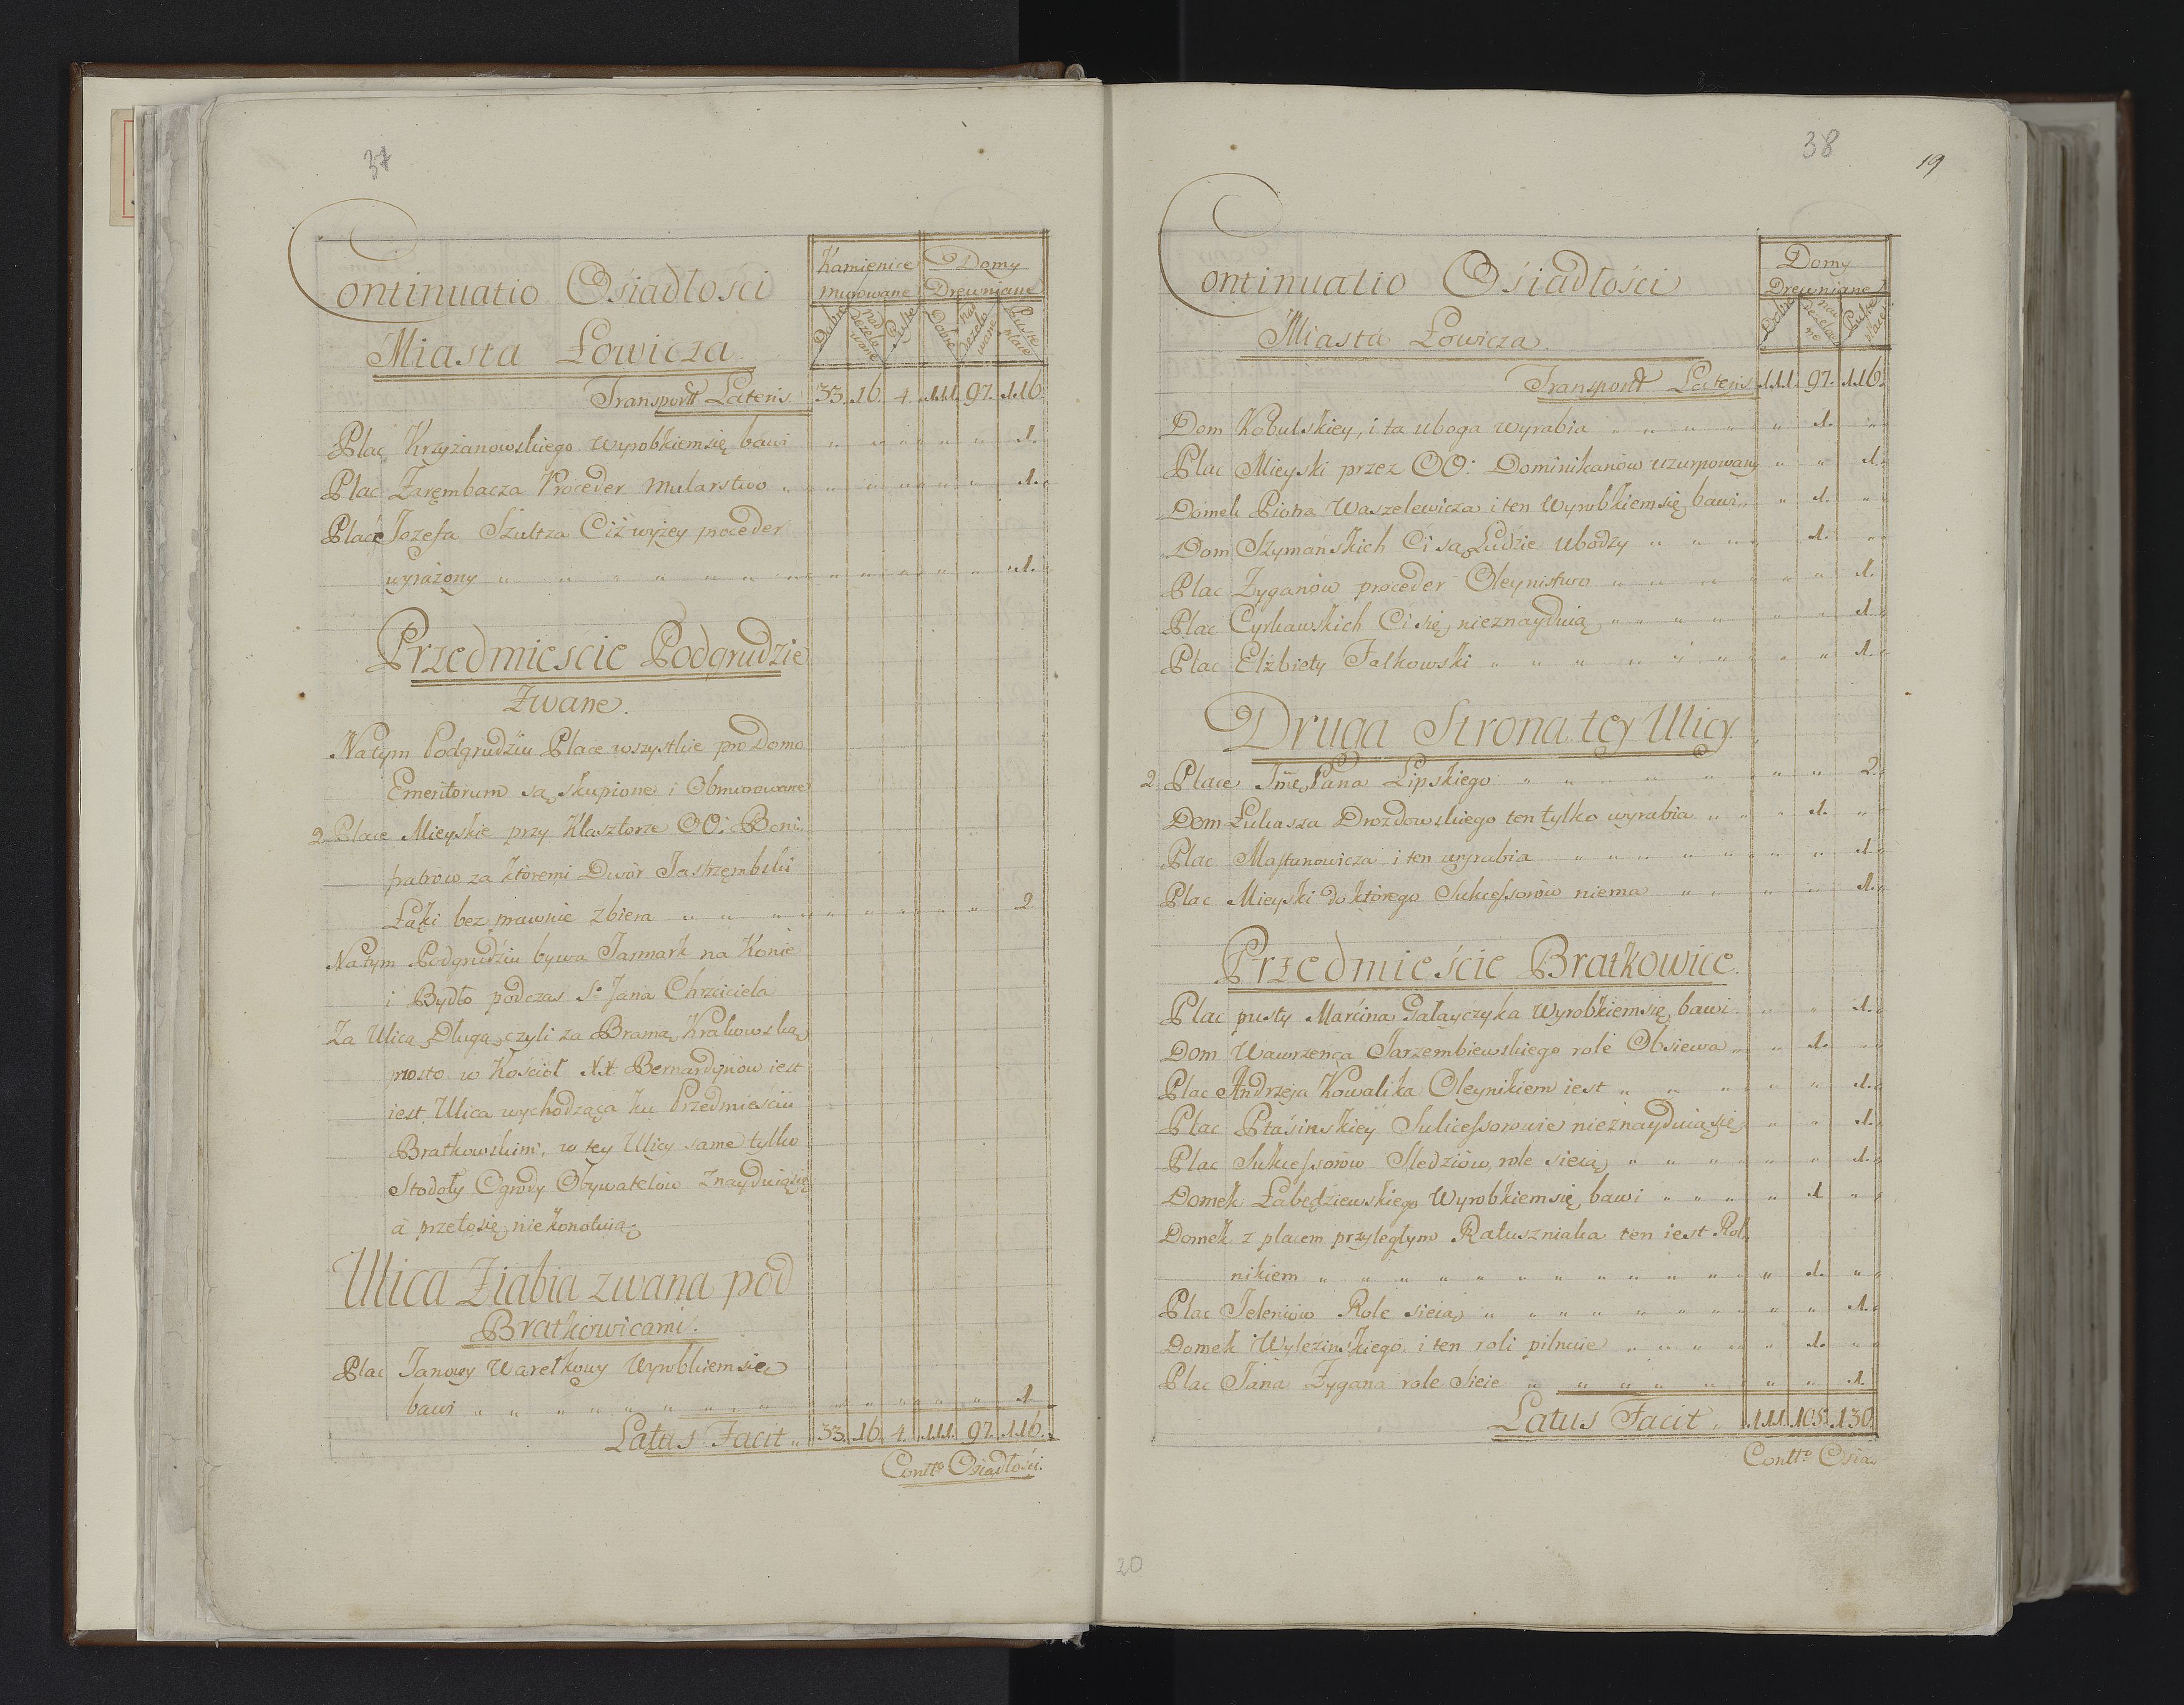 37
Continuatio Osiadłosci
Miasta Łowicza.
Kamienice murowane
Domy Drewniane
Dobre
nad dezela wane
Puste
Dobre
nad dezela wane
Puste place
Transportt Lateris. 33. 16. 4. 111. 97. 116.
Plac Krzyżanowskiego wyrobkiem się bawi " " " " " 1.
Plac Zaręmbacza Proceder mularstwo " " " " " " 1.
Place Jozefa Szultza Ciż wyżey proceder
wyrażony " " " " " " " " " " " " 1.
Przedmiescie Podgrudzie
Zwane.
Na tym Podgrudziu Place wszystkie pro Domo
Emeritorum są skupione i Obmurowane
2 Place Mieyskie przy Klasztorze OO: Boni-
fratrów za któremi Dwór Jastrzęmbski
Łąki bez prawnie zbiera " " " " " " " " " 2
Na tym Podgrudziu bywa Jarmark na Konie
i Bydło podczas So Jana Chrzciciela
Za Ulicą Długą czyli za Bramą Krakowską
prosto w Kościół XX Bernardynów iest
iest Ulica wychodząca ku Przedmiesciu
Bratkowskim, w tey Ulicy same tylko
Stodoły Ogrody Obywatelów znayduią się
a przeto się nie konotuią
Ulica Ziabia zwana pod
Bratkowicami.
Plac Janowy Waretkowy Wyrobkiem się
bawi " " " " " " " " " " " " 1
Latus Facit " 33. 16. 4. 111. 97. 116.
Contto Osiadłości.
38
19
Continuatio Ośiadłości
Miasta Łowicza.
Domy Drewniane
Dobre
nad dezelowa ne
Puste place
Transportt Lateris 111. 97. 116.
Dom Kobulskiey, i ta uboga wyrabia " " " " " 1. "
Plac Mieyski przez OO: Dominikanów uzurpowany " " 1.
Domek Piotra Waszelewicza i ten Wyrobkiem się bawi " " 1. "
Dom Szymańskich Ci są Ludzie Ubodzy " " " " 1. "
Plac Zyganów proceder Oleynistwo " " " " " " 1.
Plac Cyrkawskich Ci się nieznayduią " " " " " " 1.
Plac Elżbiety Falkowski " " " " " " " " 1.
Druga Strona tey Ulicy
2 Place Jme Pana Lipskiego " " " " " " " 2.
Dom Łukasza Drozdowskiego ten tylko wyrabia " " " 1. "
Plac Mastanowicza i ten wyrabia " " " " " " " 1.
Plac Mieyski do którego Sukcessorów niema " " " " 1.
Przedmieście Bratkowice.
Plac pusty Marcina Gałayczyka Wyrobkiem się bawi " " 1.
Dom Wawrzenca Jarzembiewskiego role Obsiewa " " 1. "
Plac Andrzeja Kowalika Oleynikiem iest " " " " " 1.
Plac Ptasinskiey Sukcessorowie nieznayduią się " " 1.
Plac Sukcessorów Sledziów, role sieią " " " " " " 1.
Domek Łabędziewskiego Wyrobkiem się bawi " " " " 1 "
Domek z placem przyległym Ratuszniaka ten iest Rol-
nikiem " " " " " " " " " " " " " 1. "
Plac Jeleniów Role sieią " " " " " " " " " 1.
Domek Wylezinskiego i ten roli pilnuie " " " " " 1. "
Plac Jana Zygana role sieie " " " " " " " " 1.
Latus Facit. 111. 105. 130.
Contto Osia.
20